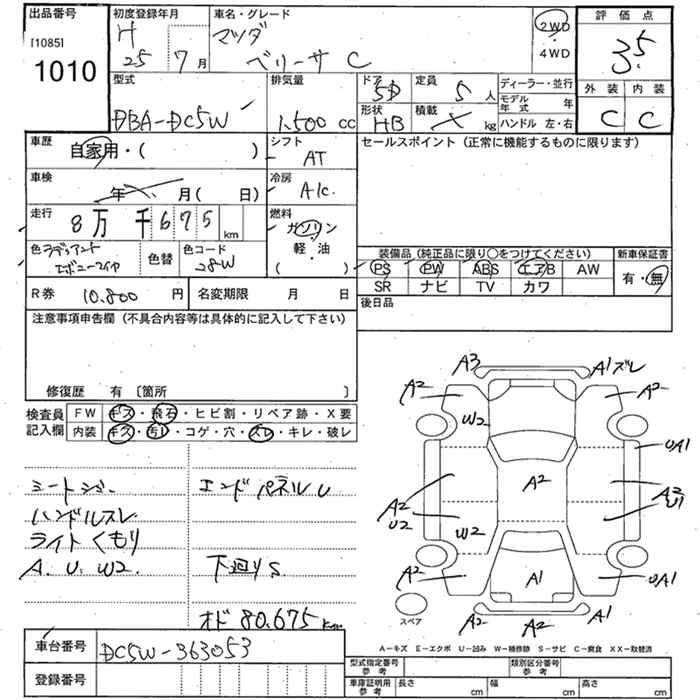 出品番号
[1085]
1010
初度登録年月
H 25年 7月
車名・グレード
マツダ
ベリーサ C
2WD
4WD
評価点
3.5
外装 内装
C C
型式
DBA-DC5W
排気量
1.500 cc
ドア 5D
形状 HB
定員 5人
積載 kg
ディーラー・並行
モデル年式 年
ハンドル 左・右
車歴
自家用・( )
シフト
AT
車検
年 月( 日)
冷房
A/c.
走行
8万 千 6 7 5 km
燃料
ガソリン
軽・油
( )
色 ラディアント
エボニーマイカ
色替
色コード
28W
R券 10.800 円
名変期限 月 日
セールスポイント（正常に機能するものに限ります）
装備品（純正品に限り○をつけてください）
PS PW ABS エアB AW
SR ナビ TV カワ
新車保証書
有・無
後日品
注意事項申告欄（不具合内容等は具体的に記入して下さい）
修復歴 有 〔箇所 〕
検査員
記入欄
FW キズ・飛石・ヒビ割・リペア跡・X要
内装 キズ・汚レ・コゲ・穴・スレ・キレ・破レ
シートシミ
ハンドルスレ
ライトくもり
A. U. W2.
エンドパネルU
下廻りS
オド 80.675 Km
A3
A1ズレ
A2
A2
W2
UA1
A2
U2
A2
A2
U1
W2
A2
A1
UA1
A2
A2
A1
スペア
A-キズ E-エクボ U-凹み W-補修跡 S-サビ C-腐食 XX-取替済
車台番号
DC5W-363053
登録番号
型式指定番号
参考
類別区分番号
参考
車庫証明用
参考
長さ cm
幅 cm
高さ cm